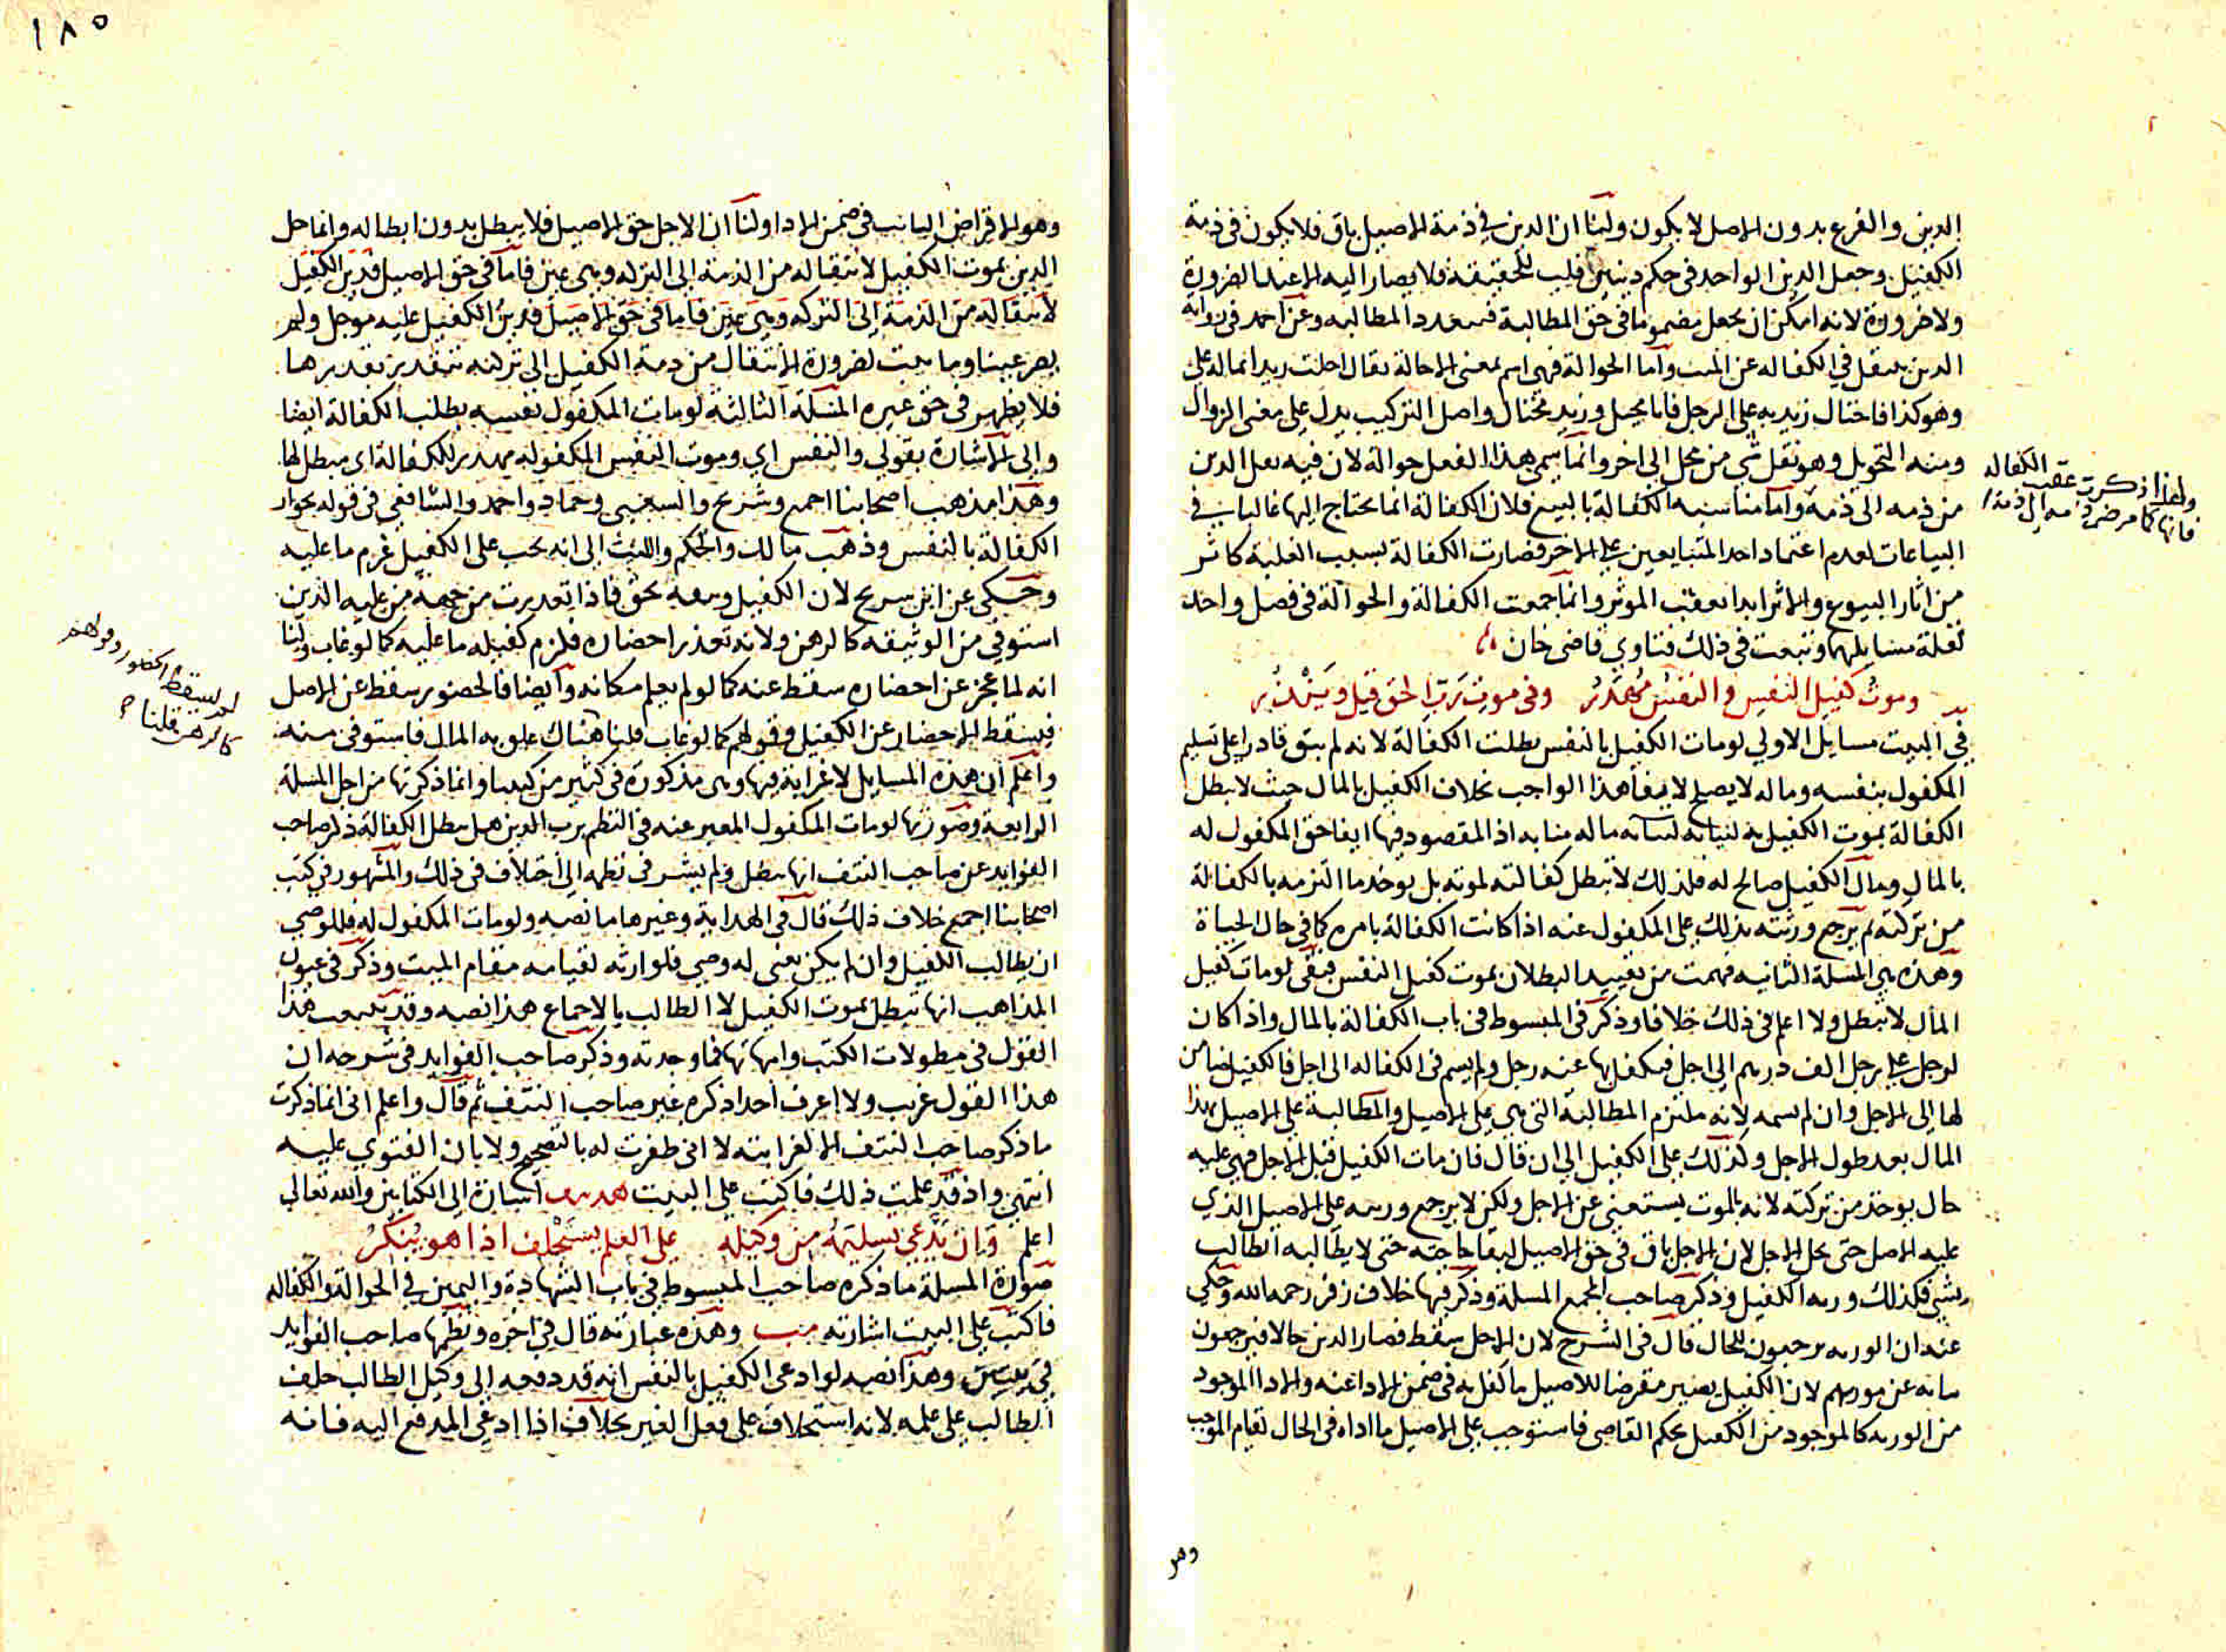 الدين والفرع بدون الاصل لا يكون ولنا ان الدين في ذمة الاصيل باق فلا يكون في ذمة
الكفيل وجعل الدين الواحد في حكم دينين قلب للحقيقة فلا يصار اليه الا عند الضرورة
ولا ضرورة لانه امكن ان يجعل مضموما في حق المطالبة فتعدد المطالبه وعن احمد في رواية
الدين ينتقل في الكفاله عن الميت واما الحوالة فهي اسم بمعنى الاحالة يقال احلت زيدا بماله على
وهو كذا فاحتال زيد به على الرجل فانا محيل وزيد محتال واصل التركيب يدل على معنى الزوال
ومنه التحويل وهو نقل شي من محل الى اخر وانما سمي هذا الفعل حوالة لان فيه نقل الدين
من ذمه الى ذمة واما مناسبه الكفالة بالبيع فلان الكفالة انما يحتاج اليها غالبا في
البياعات لعدم اعتماد احد المتبايعين على الاخر فصارت الكفالة بسبب الغلبة كاثر
من اثار البيوع والاثر ابدا يعقب الموثر وانما جمعت الكفالة والحوالة في فصل واحد
لقلة مسايلهما وتبعت في ذلك فتاوي قاضي خان
وموت كفيل النفس والنفس مهدر وفي موت رب الحق قيل ويندر
في البيت مسايل الاولي لو مات الكفيل بالنفس بطلت الكفالة لانه لم يبق قادرا على تسليم
المكفول بنفسه وماله لا يصلح لايفا هذا الواجب بخلاف الكفيل بالمال حيث لا تبطل
الكفالة بموت الكفيل به لنيابة ماله منابه اذ المقصود فيها ايفا حق المكفول له
بالمال ومال الكفيل صالح له فلذلك لا تبطل كفالته بموته بل يوخذ ما التزمه بالكفالة
من تركته ثم يرجع ورثته بذلك على المكفول عنه اذا كانت الكفالة بامره كما في حال الحياة
وهذه هي المسلة الثانيه فهمت من تقييد البطلان بموت كفيل النفس فبقي لو مات كفيل
المال لا تبطل ولا اعلم في ذلك خلافا وذكر في المبسوط في باب الكفالة بالمال واذا كان
لرجل على رجل الف درهم الى اجل فكفل بها عنه رجل ولم يسم في الكفاله الى اجل فالكفيل ضامن
لها الى الاجل وان لم يسمه لانه ملتزم المطالبة التي هي على الاصيل والمطالبة على الاصيل بهذا
المال بعد حلول الاجل وكذلك على الكفيل الى ان قال فان مات الكفيل قبل الاجل فهي عليه
حال يوخذ من تركته لانه بالموت يستغني عن الاجل ولكن لا يرجع ورثته على الاصيل الذي
عليه الاصل حتى يحل الاجل لان الاجل باق في حق الاصيل لبقا حاجته حتى لا يطالبه الطالب
بشي فكذلك ورثه الكفيل وذكر صاحب المجمع المسلة وذكر فيها خلاف زفر رحمه الله وحكي
عنه ان الورثه يرجعون للحال قال في الشرح لان الاجل سقط فصار الدين حالا فيرجعون
نيابه عن مورثهم لان الكفيل يصير مقرضا للاصيل ما كفل به في ضمن الاداعنه والادا الموجود
من الورثه كالموجود من الكفيل بحكم القاضي فاستوجب على الاصيل ما اداه في الحال لقيام الموجب
وهو
ولهذا ذكرت عقب الكفاله
١٨٥
وهو الاقراض الثابت في ضمن الادا ولنا ان الاجل حق الاصيل فلا يبطل بدون ابطاله وانما حل
الدين بموت الكفيل لانتقاله من الذمة الى التركه وهي عين فاما في حق الاصيل فدين الكفيل
لانتقاله من الذمة الى التركه وهي عين فاما في حق الاصيل فدين الكفيل عليه موجل ولم
يصر عينا وما يثبت لضرورة الانتقال من ذمة الكفيل الى تركته تتقدر بقدرها
فلا يظهر في حق غيره المسئلة الثالثة لو مات المكفول بنفسه بطلت الكفالة ايضا
والى الاشارة بقولي والنفس اي وموت النفس المكفوله مهدر للكفالة اي مبطل لها
وهذا مذهب اصحابنا اجمع وشريح والشعبي وحماد واحمد والشافعي في قوله بجواز
الكفالة بالنفس وذهب مالك والحكم والليث الى انه يجب على الكفيل غرم ما عليه
وحكي عن ابن سريج لان الكفيل وثيقه بحق فاذا تعذرت من جهة من عليه الدين
استوفي من الوثيقه كالرهن ولانه تعذر احضاره فلزم كفيله ما عليه كما لو غاب ولنا
انه لما عجز عن احضاره سقط عنه كما لو لم يعلم مكانه وايضا فالحضور سقط عن الاصل
فيسقط الاحضار عن الكفيل وقولهم كما لو غاب قلنا هناك علق به المال فاستوفى منه
واعلم ان هذه المسايل لا غرابة فيها وهي مذكورة في كثير من كتبنا وانما ذكرتها من اجل المسلة
الرابعة وصورتها لو مات المكفول المعبر عنه في النظم برب الدين هل تبطل الكفالة ذكر صاحب
الفوايد عن صاحب النتف انها تبطل ولم يشر في نظمه الى اختلاف في ذلك والمشهور في كتب
اصحابنا اجمع خلاف ذلك قال في الهداية وغيرها ما نصه ولو مات المكفول له فللوصي
ان يطالب الكفيل وان لم يكن يعني له وصي فلوارثه لقيامه مقام الميت وذكر في عيون
المذاهب انها تبطل بموت الكفيل لا الطالب بالاجماع هذا نصه وقد تتبعت هذا
القول في مطولات الكتب وامهاتها فما وجدته وذكر صاحب الفوايد في شرحه ان
هذا القول غريب ولا اعرف احدا ذكره غير صاحب النتف ثم قال واعلم اني انما ذكرت
ما ذكر صاحب النتف الا لغرابته لا اني ظفرت له بالتصحيح ولا بان الفتوي عليه
انتهي واذ قد علمت ذلك فاكتب على البيت اشارة الى الكتابين والله تعالى
اعلم وان يدعي تسليمه من وكيله على العلم يستحلف اذا هو ينكر
صورة المسلة ما ذكره صاحب المبسوط في باب الشهادة واليمين في الحوالة والكفاله
فاكتب على البيت اشارته وهذه عبارته قال في اخره ونظمها صاحب الفوايد
في بيتين وهذا نصه لو ادعى الكفيل بالنفس انه قد دفعه الى وكيل الطالب حلف
الطالب على علمه لانه استحلاف على فعل الغير بخلاف اذا ادعي الدفع اليه فانه